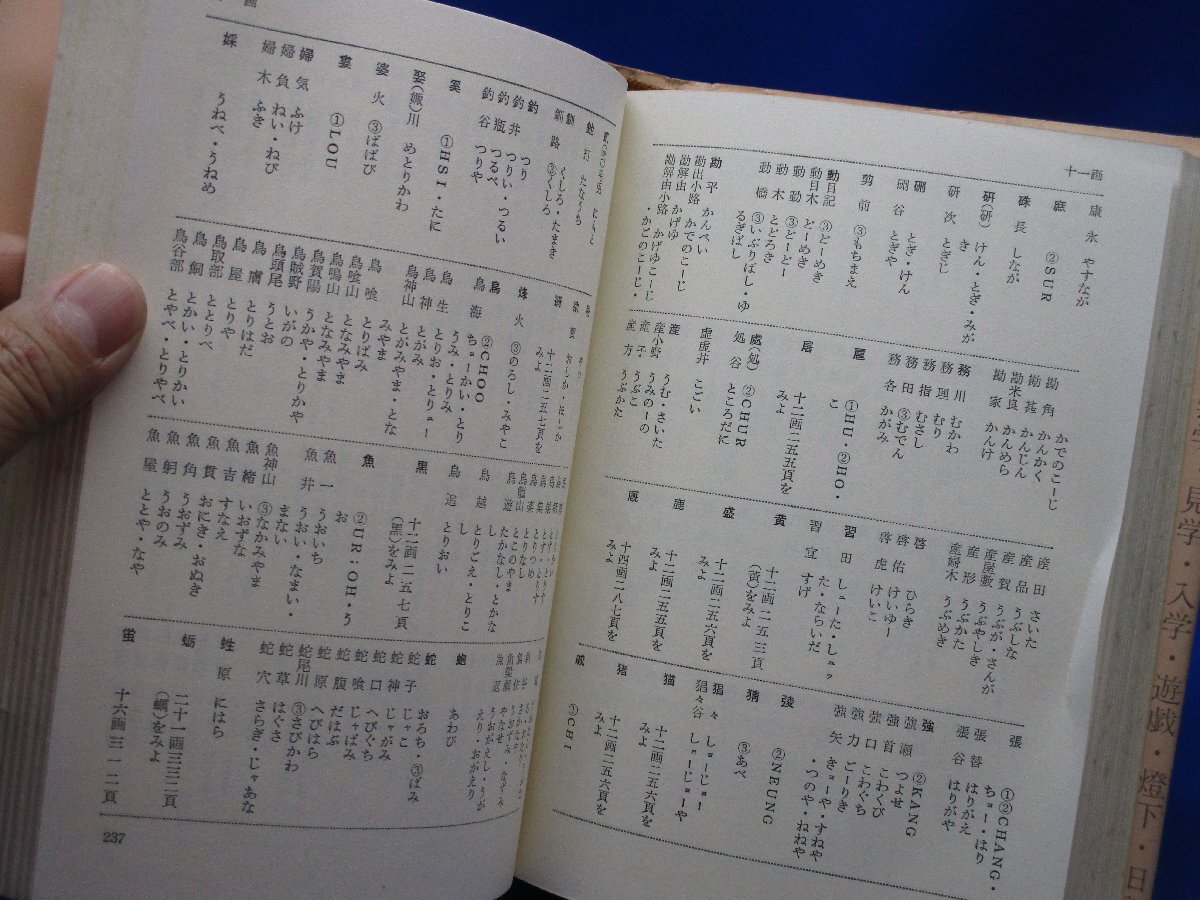 十一画
康永 やすなが
庶 ②SUR
硃
長 しなが
研(硏) けん・とぎ・みがき
研次 とぎじ
硎 とぎ・けん
硎谷 とぎや
剪前 ③もちまえ
動日記 ③どーめき
動目木 どーめき
動動 ③どーどー
動木 とどろき
動橋 ③いぶりばし・ゆるぎばし
勘平 かんべい
勘出小路 かでのこーじ
勘解由 かげゆ
勘解由小路 かげゆこーじ・かどのこーじ・かでのこーじ
勘角 かんかく
勘甚 かんじん
勘米良 かんめら
勘家 かんけ
務川 むかわ
務理 むり
務指 むさし
務田 ③むでん
務各 かがみ
扈 ①HU・②HO・こ
屠 十二画二五五頁をみよ
處(処) ②CHUR
処谷 ところだに
虚虚井 こごい
産 うむ・さいた
産小野 うみの
産子 うぶこ
産方 うぶかた
産田 さいた
産品 うぶしな
産賀 うぶが・さんが
産屋敷 うぶやしき
産形 うぶかた
産婦木 うぶめき
啓 ひらき
啓佑 けいゆー
啓虎 けいこ
習田 しゅーた・しゅった・ならいだ
習宜 すげ
黄 十二画二五三頁(黃)をみよ
盛 十二画二五六頁をみよ
鹿 十二画二五六頁をみよ
厩 十四画二八七頁をみよ
張 ①②CHANG・ちョー・はり
張替 はりがえ
張谷 はりがや
強 ②KANG
強瀬 つよせ
強首 こわくび
強口 こわぐち
強力 ごーりき
強矢 きョーや・すねや・つのや・ねねや
②NEUNG
猜 ③あべ
猖々 しョーじョー
猖々谷 しョーじョーや
猫 十二画二五六頁をみよ
猪 十二画二五六頁をみよ
戚 ①CHI
画
釧 くしろ・たまき
釧路 ②くしろ
釣 つり
釣井 つりい・つるい
釣瓶 つるべ
釣谷 つりや
奚 ①HSI・たに
娶(娵)川 めとりかわ
婆火 ③ばばび
婁 ①LOU
婦気 ふけ
婦負 ねい・ねび
婦木 ふき
婇 うねべ・うねめ
十二画二五七頁をみよ
烽火 ③のろし・みやこ
鳥 ②CHOO ちョーかい・とりうみ・とりみ
鳥海
鳥生 とりお・とりュー
鳥神 とがみ
鳥神山 とがみやま・となみやま
鳥喰 とりばみ
鳥喰山 となみやま
鳥鳴山 となみやま
鳥賀陽 うかや・とりかや
鳥賊野 いがの
鳥頭尾 うとお
鳥膚 とりはだ
鳥屋 とりや
鳥取部 ととりべ
鳥飼 とかい・とりかい
鳥谷部 とやべ・とりやべ
鳥越 とりごえ・とりこし
鳥追 とりおい
黒 十二画二五七頁(黑)をみよ
魚 ②UR:OH・うお
魚一 うおいち
魚井 うおい・なまい・まない
魚神山 ③なかみやま
魚緒 いおずな
魚吉 すなえ
魚貫 おにき・おぬき
魚角 うおずみ
魚躬 うおのみ
魚屋 ととや・なや
魚返 えり・おがえり
鮑 あわび
蛇 おろち・③ばみ
蛇子 じゃこ
蛇神 じゃがみ
蛇口 へびぐち
蛇喰 じゃばみ
蛇腹 だはぶ
蛇原 へびはら
蛇尾川 ③さびかわ
蛇草 はぐさ
蛇穴 さらぎ・じゃあな
蛭原 にはら
蛎 二十一画三三二頁(蠣)をみよ
蛍 十六画三一二頁
237
見学・入学・遊戯・燈下・日